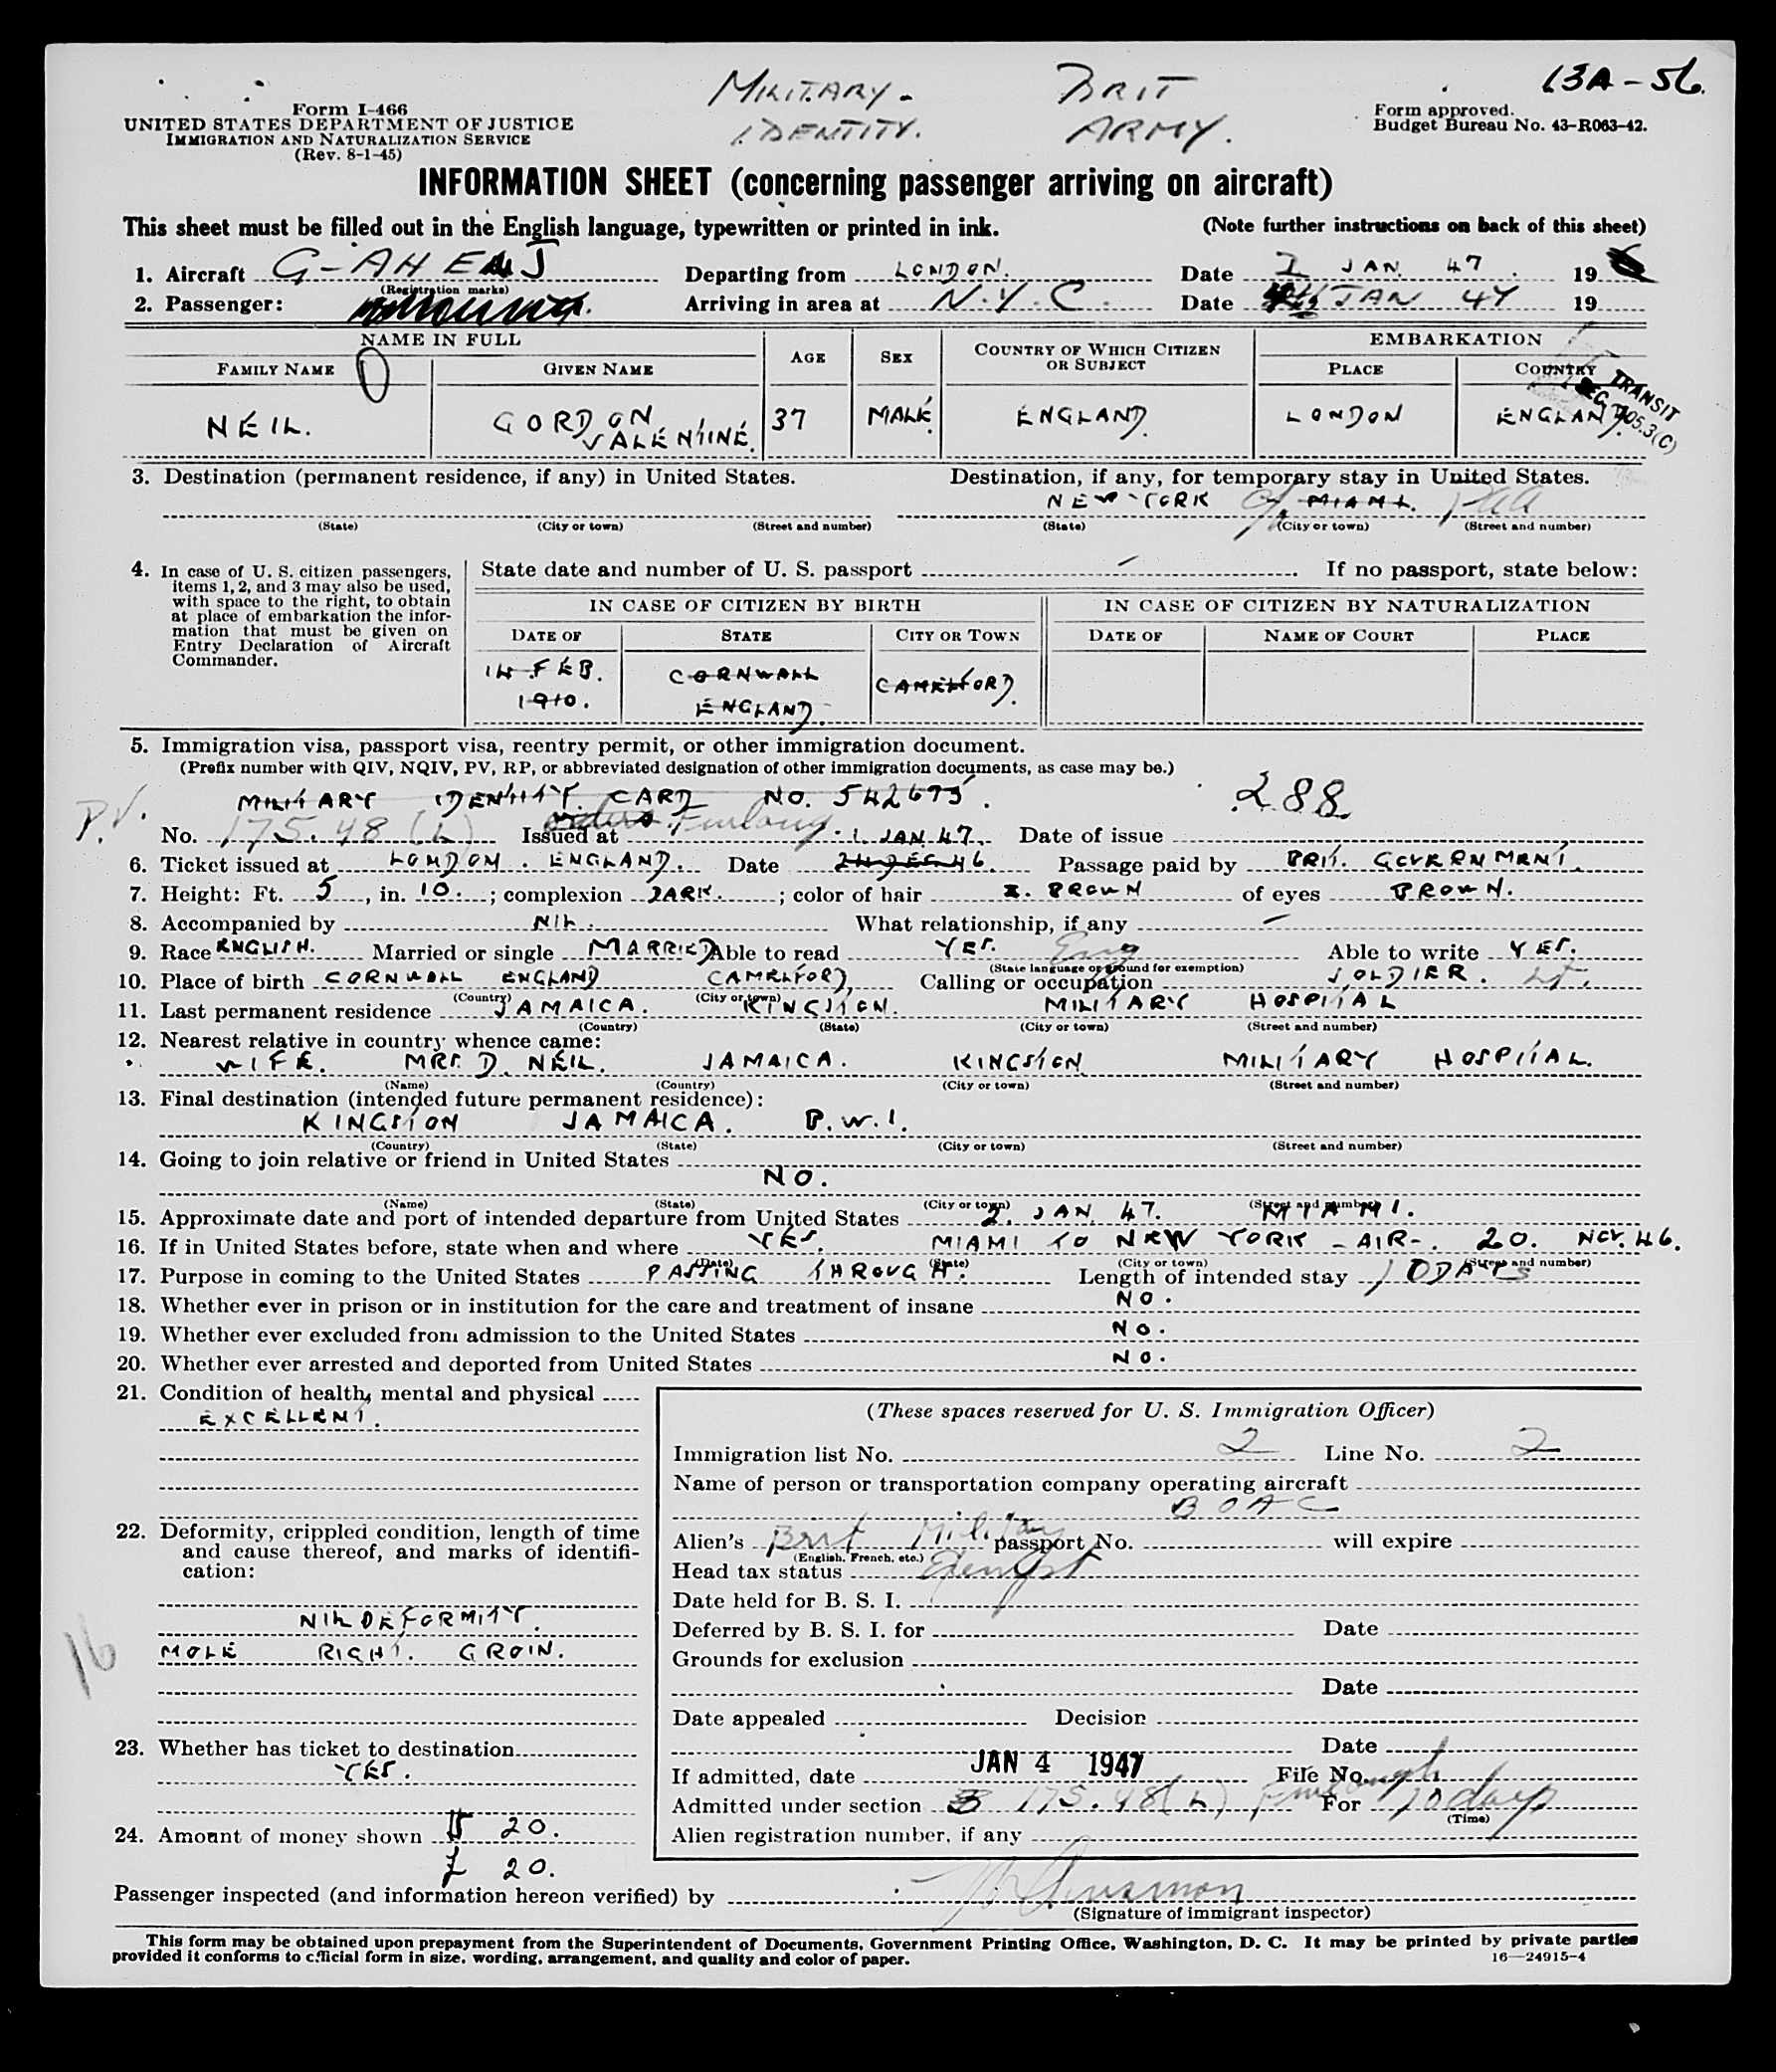 MILITARY - BRIT 13A-56.
IDENTITY. ARMY.
Form I-466
UNITED STATES DEPARTMENT OF JUSTICE
IMMIGRATION AND NATURALIZATION SERVICE
(Rev. 8-1-45)
Form approved.
Budget Bureau No. 43-R063-42.
INFORMATION SHEET (concerning passenger arriving on aircraft)
This sheet must be filled out in the English language, typewritten or printed in ink. (Note further instructions on back of this sheet)
1. Aircraft G-AHE J Departing from LONDON. Date JAN 47. 19
(Registration marks)
2. Passenger: Arriving in area at N.Y.C. Date JAN 47 19
NAME IN FULL AGE SEX COUNTRY OF WHICH CITIZEN OR SUBJECT EMBARKATION
FAMILY NAME GIVEN NAME PLACE COUNTRY
TRANSIT
REG 105.3(C)
NEIL. GORDON VALENTINE. 37 MALE. ENGLAND. LONDON ENGLAND.
3. Destination (permanent residence, if any) in United States. Destination, if any, for temporary stay in United States.
NEW YORK MIAMI.
(State) (City or town) (Street and number) (State) (City or town) (Street and number)
4. In case of U. S. citizen passengers, items 1, 2, and 3 may also be used, with space to the right, to obtain at place of embarkation the information that must be given on Entry Declaration of Aircraft Commander.
State date and number of U. S. passport - If no passport, state below:
IN CASE OF CITIZEN BY BIRTH IN CASE OF CITIZEN BY NATURALIZATION
DATE OF STATE CITY OR TOWN DATE OF NAME OF COURT PLACE
14 FEB. 1910. CORNWALL ENGLAND. CAMELFORD.
5. Immigration visa, passport visa, reentry permit, or other immigration document.
(Prefix number with QIV, NQIV, PV, RP, or abbreviated designation of other immigration documents, as case may be.)
MILITARY IDENTITY CARD NO. 542675. 288
P.V. No. 175.48 (L) Issued at 1 JAN 47. Date of issue
6. Ticket issued at LONDON. ENGLAND. Date 24 DEC 46. Passage paid by BRIT. GOVERNMENT.
7. Height: Ft. 5, in. 10.; complexion DARK.; color of hair BROWN of eyes BROWN.
8. Accompanied by NIL. What relationship, if any -
9. Race ENGLISH. Married or single MARRIED Able to read YES. Eng Able to write YES.
(State language or ground for exemption)
10. Place of birth CORNWALL ENGLAND CAMELFORD, Calling or occupation SOLDIER.
(Country) (City or town)
11. Last permanent residence JAMAICA. KINGSTON. MILITARY HOSPITAL
(Country) (State) (City or town) (Street and number)
12. Nearest relative in country whence came:
WIFE. MRS. D. NEIL. JAMAICA. KINGSTON MILITARY HOSPITAL.
(Name) (Country) (City or town) (Street and number)
13. Final destination (intended future permanent residence):
KINGSTON JAMAICA. B.W.I.
(Country) (State) (City or town) (Street and number)
14. Going to join relative or friend in United States
NO.
(Name) (State) (City or town) (Street and number)
15. Approximate date and port of intended departure from United States 2. JAN 47. MIAMI.
16. If in United States before, state when and where YES. MIAMI TO NEW YORK - AIR -. 20. NOV. 46.
(Date) (State) (City or town) (Street and number)
17. Purpose in coming to the United States PASSING THROUGH. Length of intended stay 10 DAYS
18. Whether ever in prison or in institution for the care and treatment of insane NO.
19. Whether ever excluded from admission to the United States NO.
20. Whether ever arrested and deported from United States NO.
21. Condition of health, mental and physical
EXCELLENT.
22. Deformity, crippled condition, length of time and cause thereof, and marks of identification:
NIL DEFORMITY.
16
MOLE RIGHT. GROIN.
23. Whether has ticket to destination
YES.
24. Amount of money shown $ 20.
£ 20.
(These spaces reserved for U. S. Immigration Officer)
Immigration list No. 2 Line No. 2
Name of person or transportation company operating aircraft
BOAC
Alien's Brit Military passport No. will expire
(English, French, etc.)
Head tax status Exempt
Date held for B. S. I.
Deferred by B. S. I. for Date
Grounds for exclusion
Date
Date appealed Decision
Date
If admitted, date JAN 4 1947 File No.
Admitted under section 175.48(L) Furlough For 10 days
(Time)
Alien registration number, if any
Passenger inspected (and information hereon verified) by
(Signature of immigrant inspector)
This form may be obtained upon prepayment from the Superintendent of Documents, Government Printing Office, Washington, D. C. It may be printed by private parties
provided it conforms to official form in size, wording, arrangement, and quality and color of paper. 16—24915-4